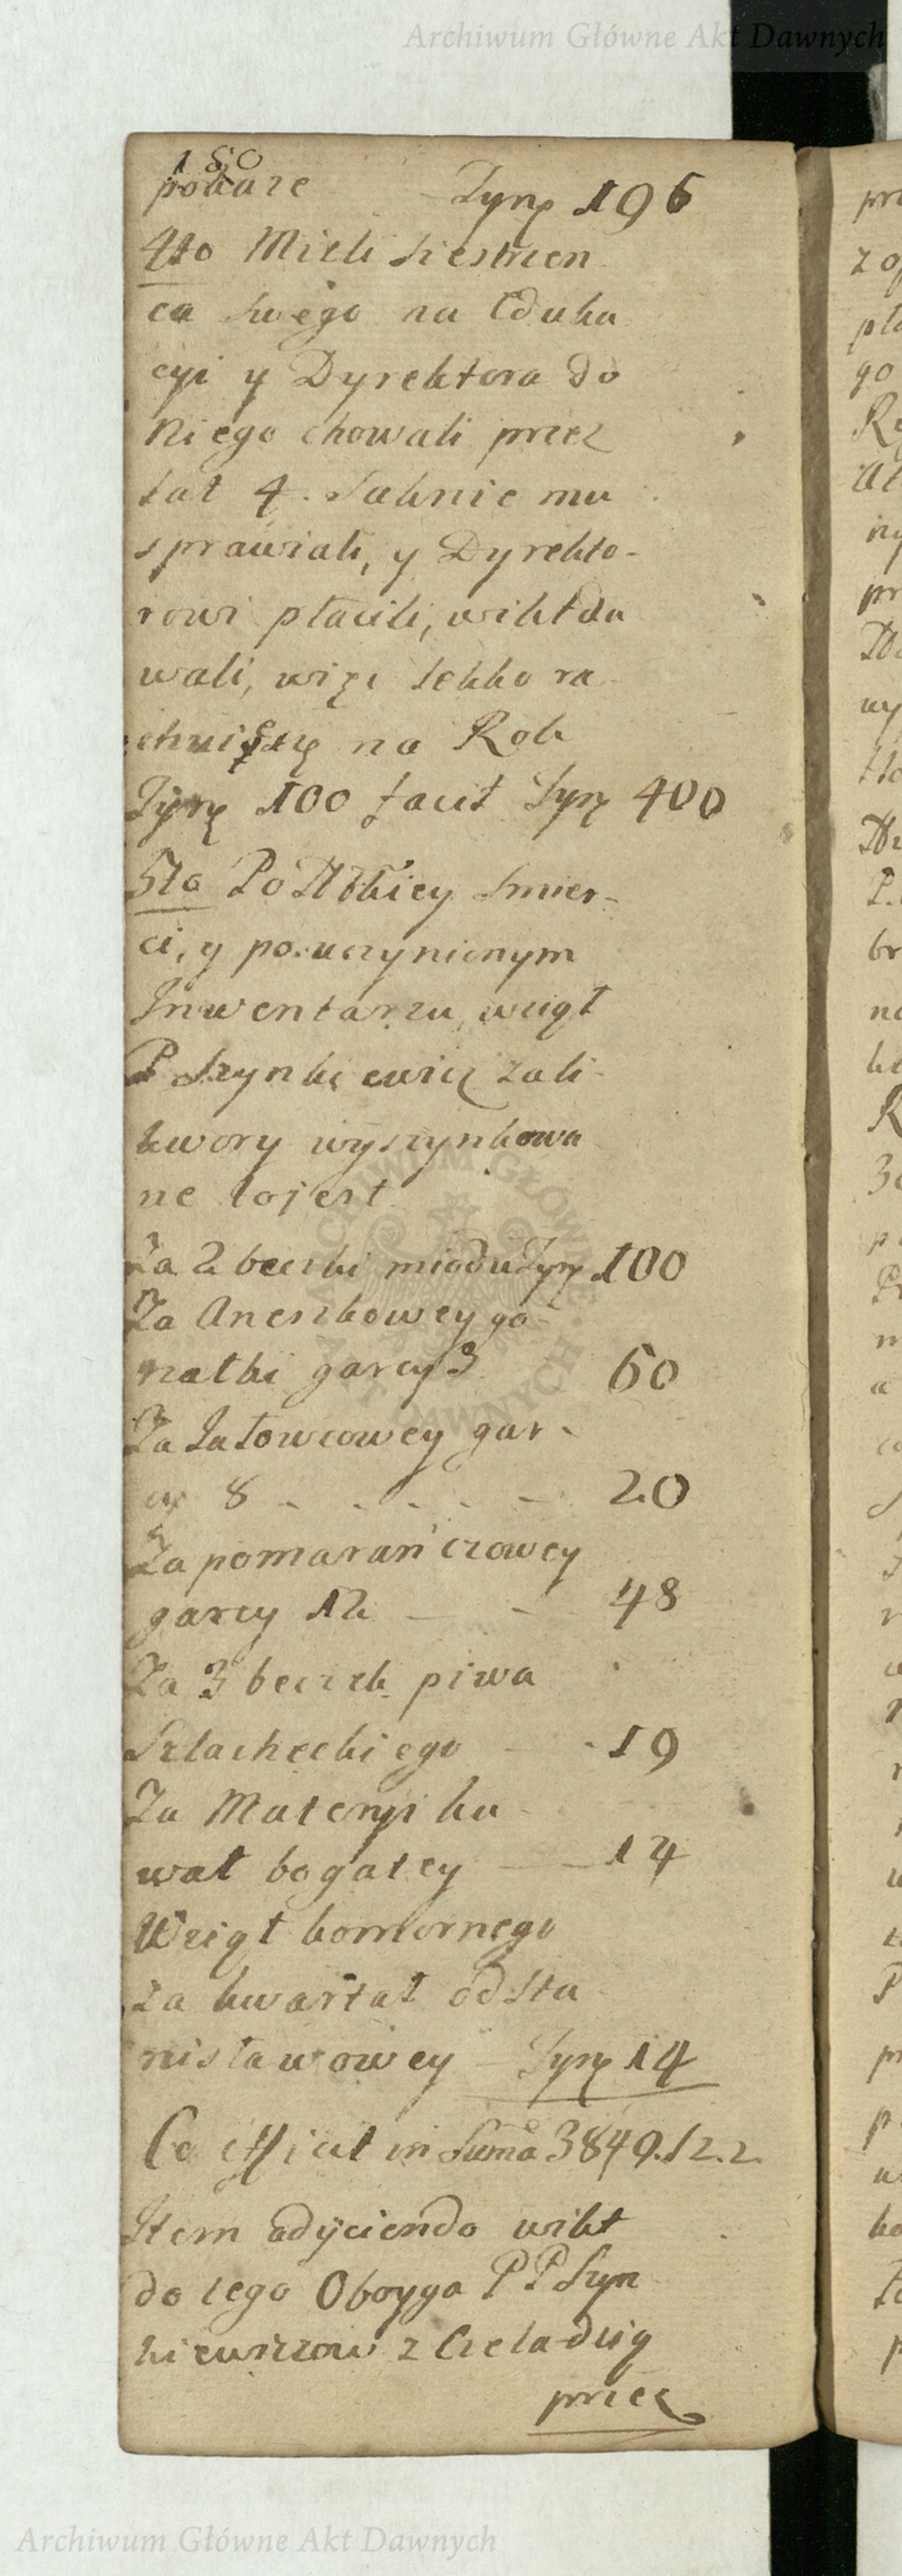 Archiwum Główne Akt Dawnych
180
pokaze Tynf 196
4to Mieli siestrzen
ca swego na Eduka
cyi y Dyrektora do
niego chowali przez
lat 4. Suknie mu
sprawiali, y Dyrekto-
rowi płacili, wikt da
wali, więc lekko ra
chuiąc na Rok
Tynf 100 facit Tynf 400
5to Po smier-
ci, y po uczynionym
Inwentarzu, wziął
P Szynkiewicz za li
kwory wyszynkowa
ne to jest
Za 2 beczki miodu Tynf 100
Za Aneszkowey go-
rzałki garcy 3 60
Za Jałowcowey gar-
cy 8 - - - - - 20
Za pomarańczowey
garcy 12 - - 48
Za 3 beczek piwa
Szlacheckiego - - 19
Za Materyi ka
wał bogatey - - 14
Wziął komornego
za kwartał od Sta
nisławowey - Tynf 14
Co efficit in Suma 3849.12.2.
Item adyciendo wikt
do tego Oboyga PP Szyn
kiewiczow z Czeladzią
przez
ARCHIWUM GŁÓWNE AKT DAWNYCH
Archiwum Główne Akt Dawnych